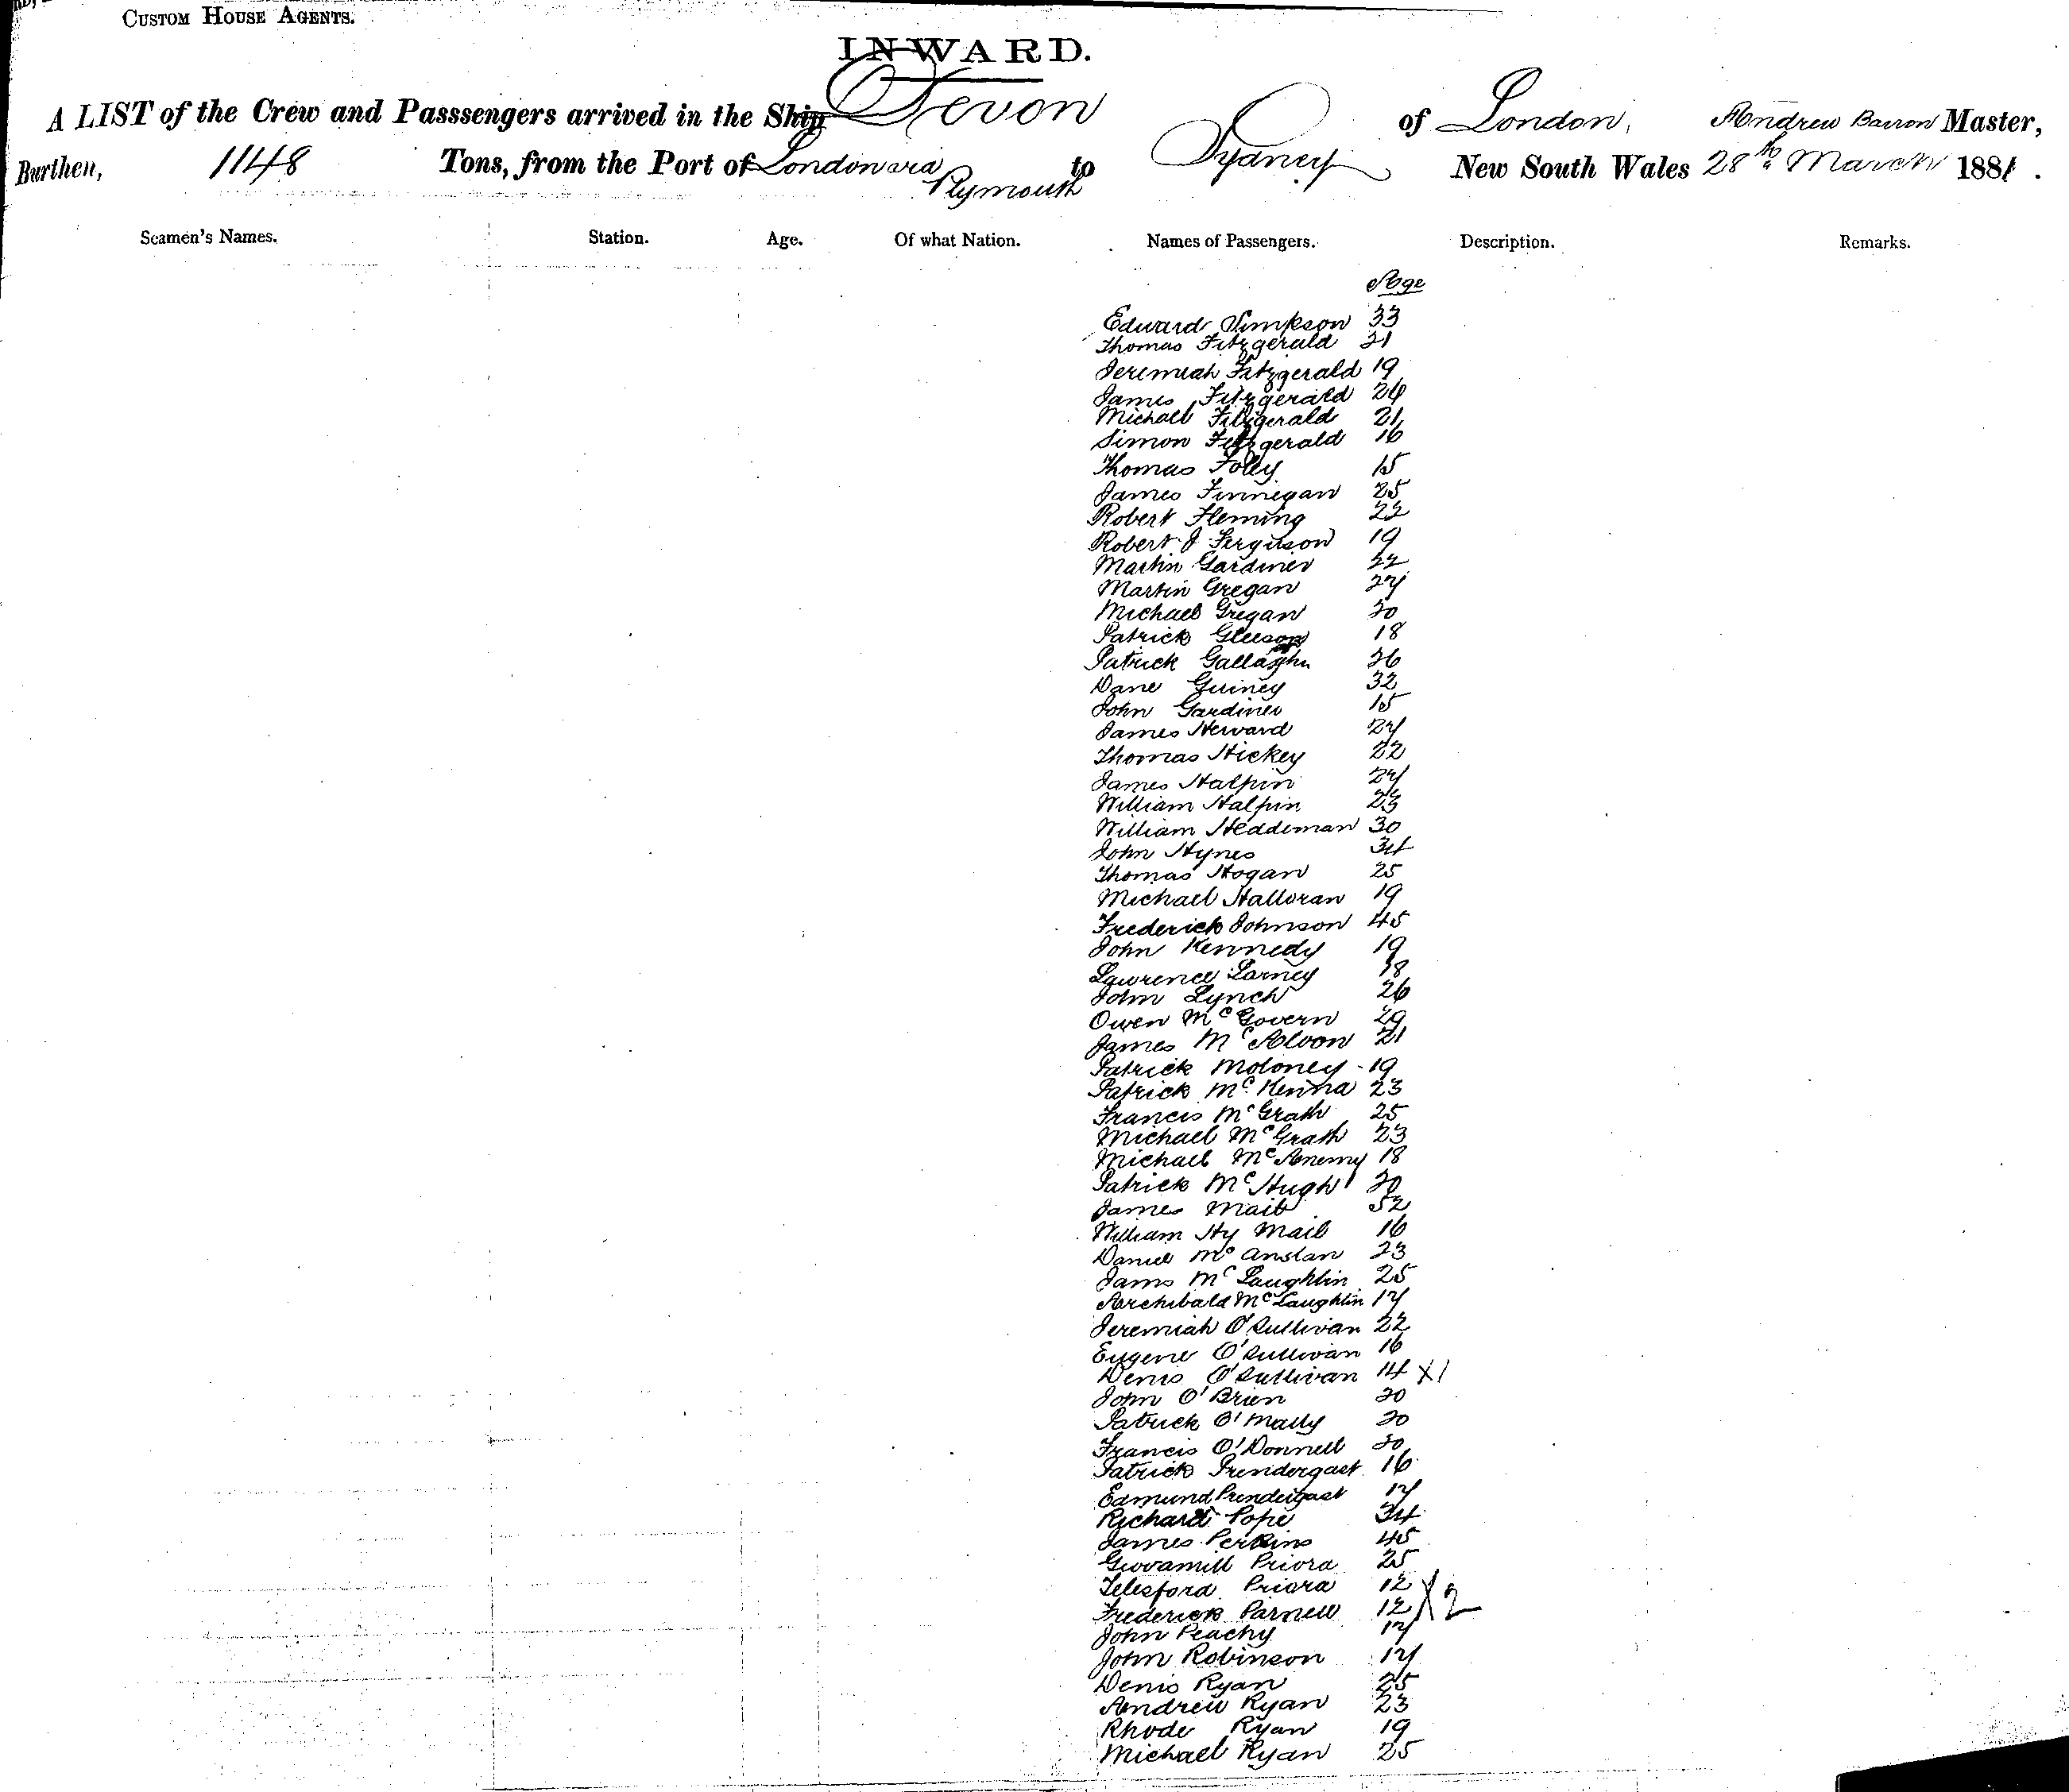 CUSTOM HOUSE AGENTS.
INWARD.
A LIST of the Crew and Passsengers arrived in the Ship Devon of London, Andrew Barron Master,
Burthen, 1148 Tons, from the Port of London via Plymouth to Sydney New South Wales 28th March 1881.
Seamen's Names. Station. Age. Of what Nation. Names of Passengers. Description. Remarks.
Age
Edward Simpson 33
Thomas Fitzgerald 21
Jeremiah Fitzgerald 19
James Fitzgerald 24
Michael Fitzgerald 21
Simon Fitzgerald 16
Thomas Foley 15
James Finnegan 25
Robert Fleming 22
Robert J Ferguson 19
Martin Gardiner 22
Martin Gregan 24
Michael Gregan 20
Patrick Gleeson 18
Patrick Gallagher 26
Dane Guiney 32
John Gardiner 15
James Heward 24
Thomas Hickey 22
James Halpin 24
William Halpin 23
William Heddeman 30
John Hynes 34
Thomas Hogan 25
Michael Halloran 19
Frederick Johnson 45
John Kennedy 19
Lawrence Larney 18
John Lynch 26
Owen McGovern 29
James McAloon 21
Patrick Moloney - 19
Patrick McKenna 23
Francis McGrath 25
Michael McGrath 23
Michael McAnemy 18
Patrick McHugh 20
James Mail 52
William Hy Mail 16
Daniel McAnslan 23
James McLaughlin 25
Archibald McLaughlin 17
Jeremiah O'Sullivan 22
Eugene O'Sullivan 16
Denis O'Sullivan 14 X1
John O'Brien 20
Patrick O'Mally 20
Francis O'Donnell 20
Patrick Prendergast 16
Edmund Prendergast 17
Richard Pope 34
James Perkins 45
Priora 25
Telesford Priora 12
Frederick Parnell 12 X2
John Peachy 17
John Robinson 17
Denis Ryan 25
Andrew Ryan 23
Rhode Ryan 19
Michael Ryan 25